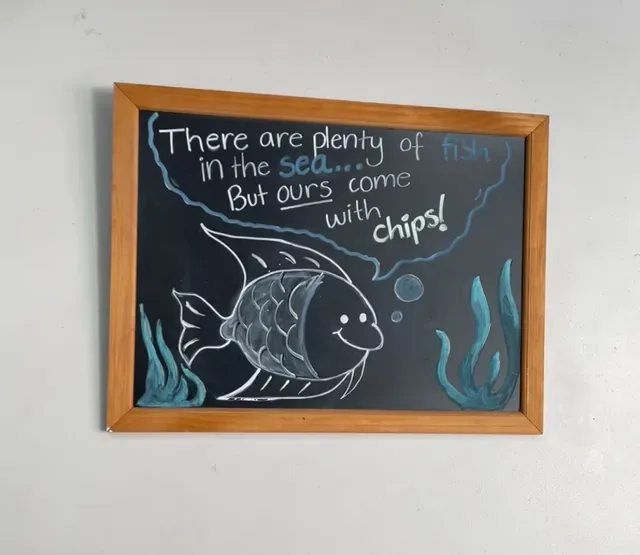 There are plenty of fish
in the sea...
But ours come
with chips!